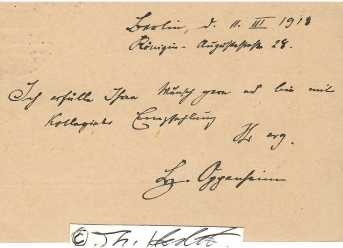 Berlin, d. 11. III 1913
Königin-Augustastraße 28.
Ich erfülle Ihren Wunsch gern und bin mit
kollegialer Empfehlung
Ihr erg.
Oppenheim
©